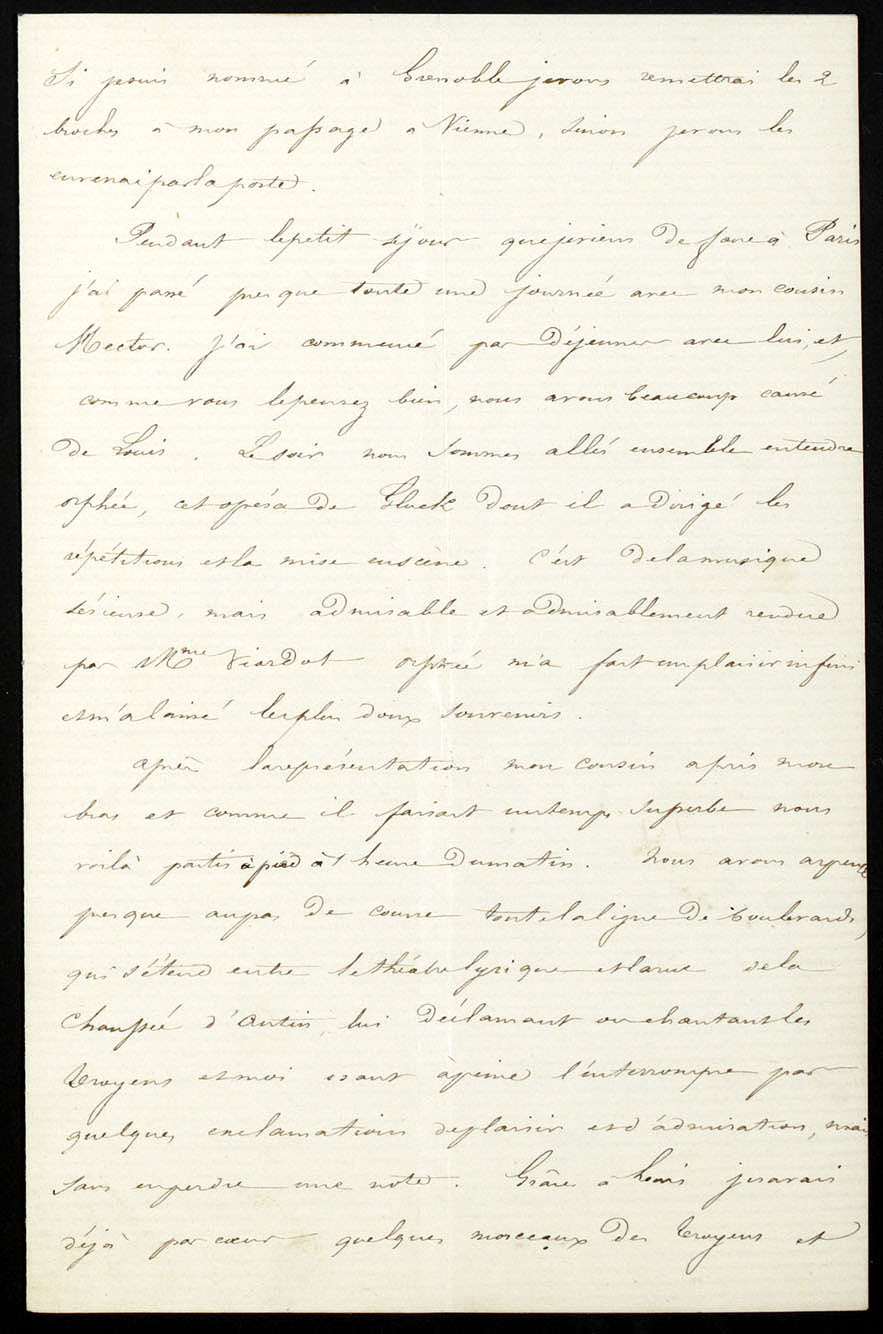 Si je suis nommé à Grenoble je vous remettrai les 2
broches à mon passage à Vienne, sinon je vous les
enverrai par la poste.
Pendant le petit séjour que je viens de faire à Paris
j'ai passé presque toute une journée avec mon cousin
Hector. J'ai commencé par déjeuner avec lui, et,
comme vous le pensez bien, nous avons beaucoup causé
de Louis. Le soir nous sommes allés ensemble entendre
orphée, cet opéra de Gluck dont il a dirigé les
répétitions et la mise en scène. C'est de la musique
sérieuse, mais admirable et admirablement rendue
par Mme Viardot orphée m'a fait un plaisir infini
et m'a laissé les plus doux souvenirs.
après la représentation mon cousin a pris mon
bras et comme il faisait un temps superbe nous
voilà partis à pied à 1 heure du matin. Nous avons arpenté
presque au pas de course toute la ligne de boulevards,
qui s'étend entre le théâtre lyrique et la rue de la
Chaussée d'antin, lui déclamant ou chantant les
troyens et moi osant à peine l'interrompre par
quelques exclamations de plaisir et d'admiration, mais
sans en perdre une note. Grâce à Louis je savais
déjà par cœur quelques morceaux des troyens et